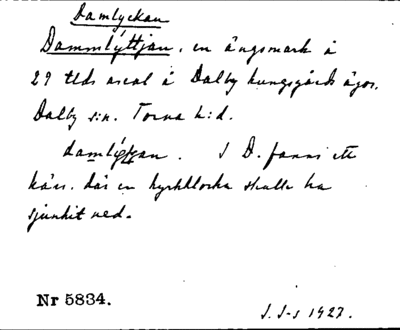 Damlyckan
Dammlýttjan, en ängsmark å
29 tlds areal å Dalby kungsgårds ägor.
Dalby s:n. Torna h:d.
damlýttjan. I D. fanns ett
kärr, där en kyrkklocka skulle ha
sjunkit ned.
Nr 5834.
J. S-s 1927.